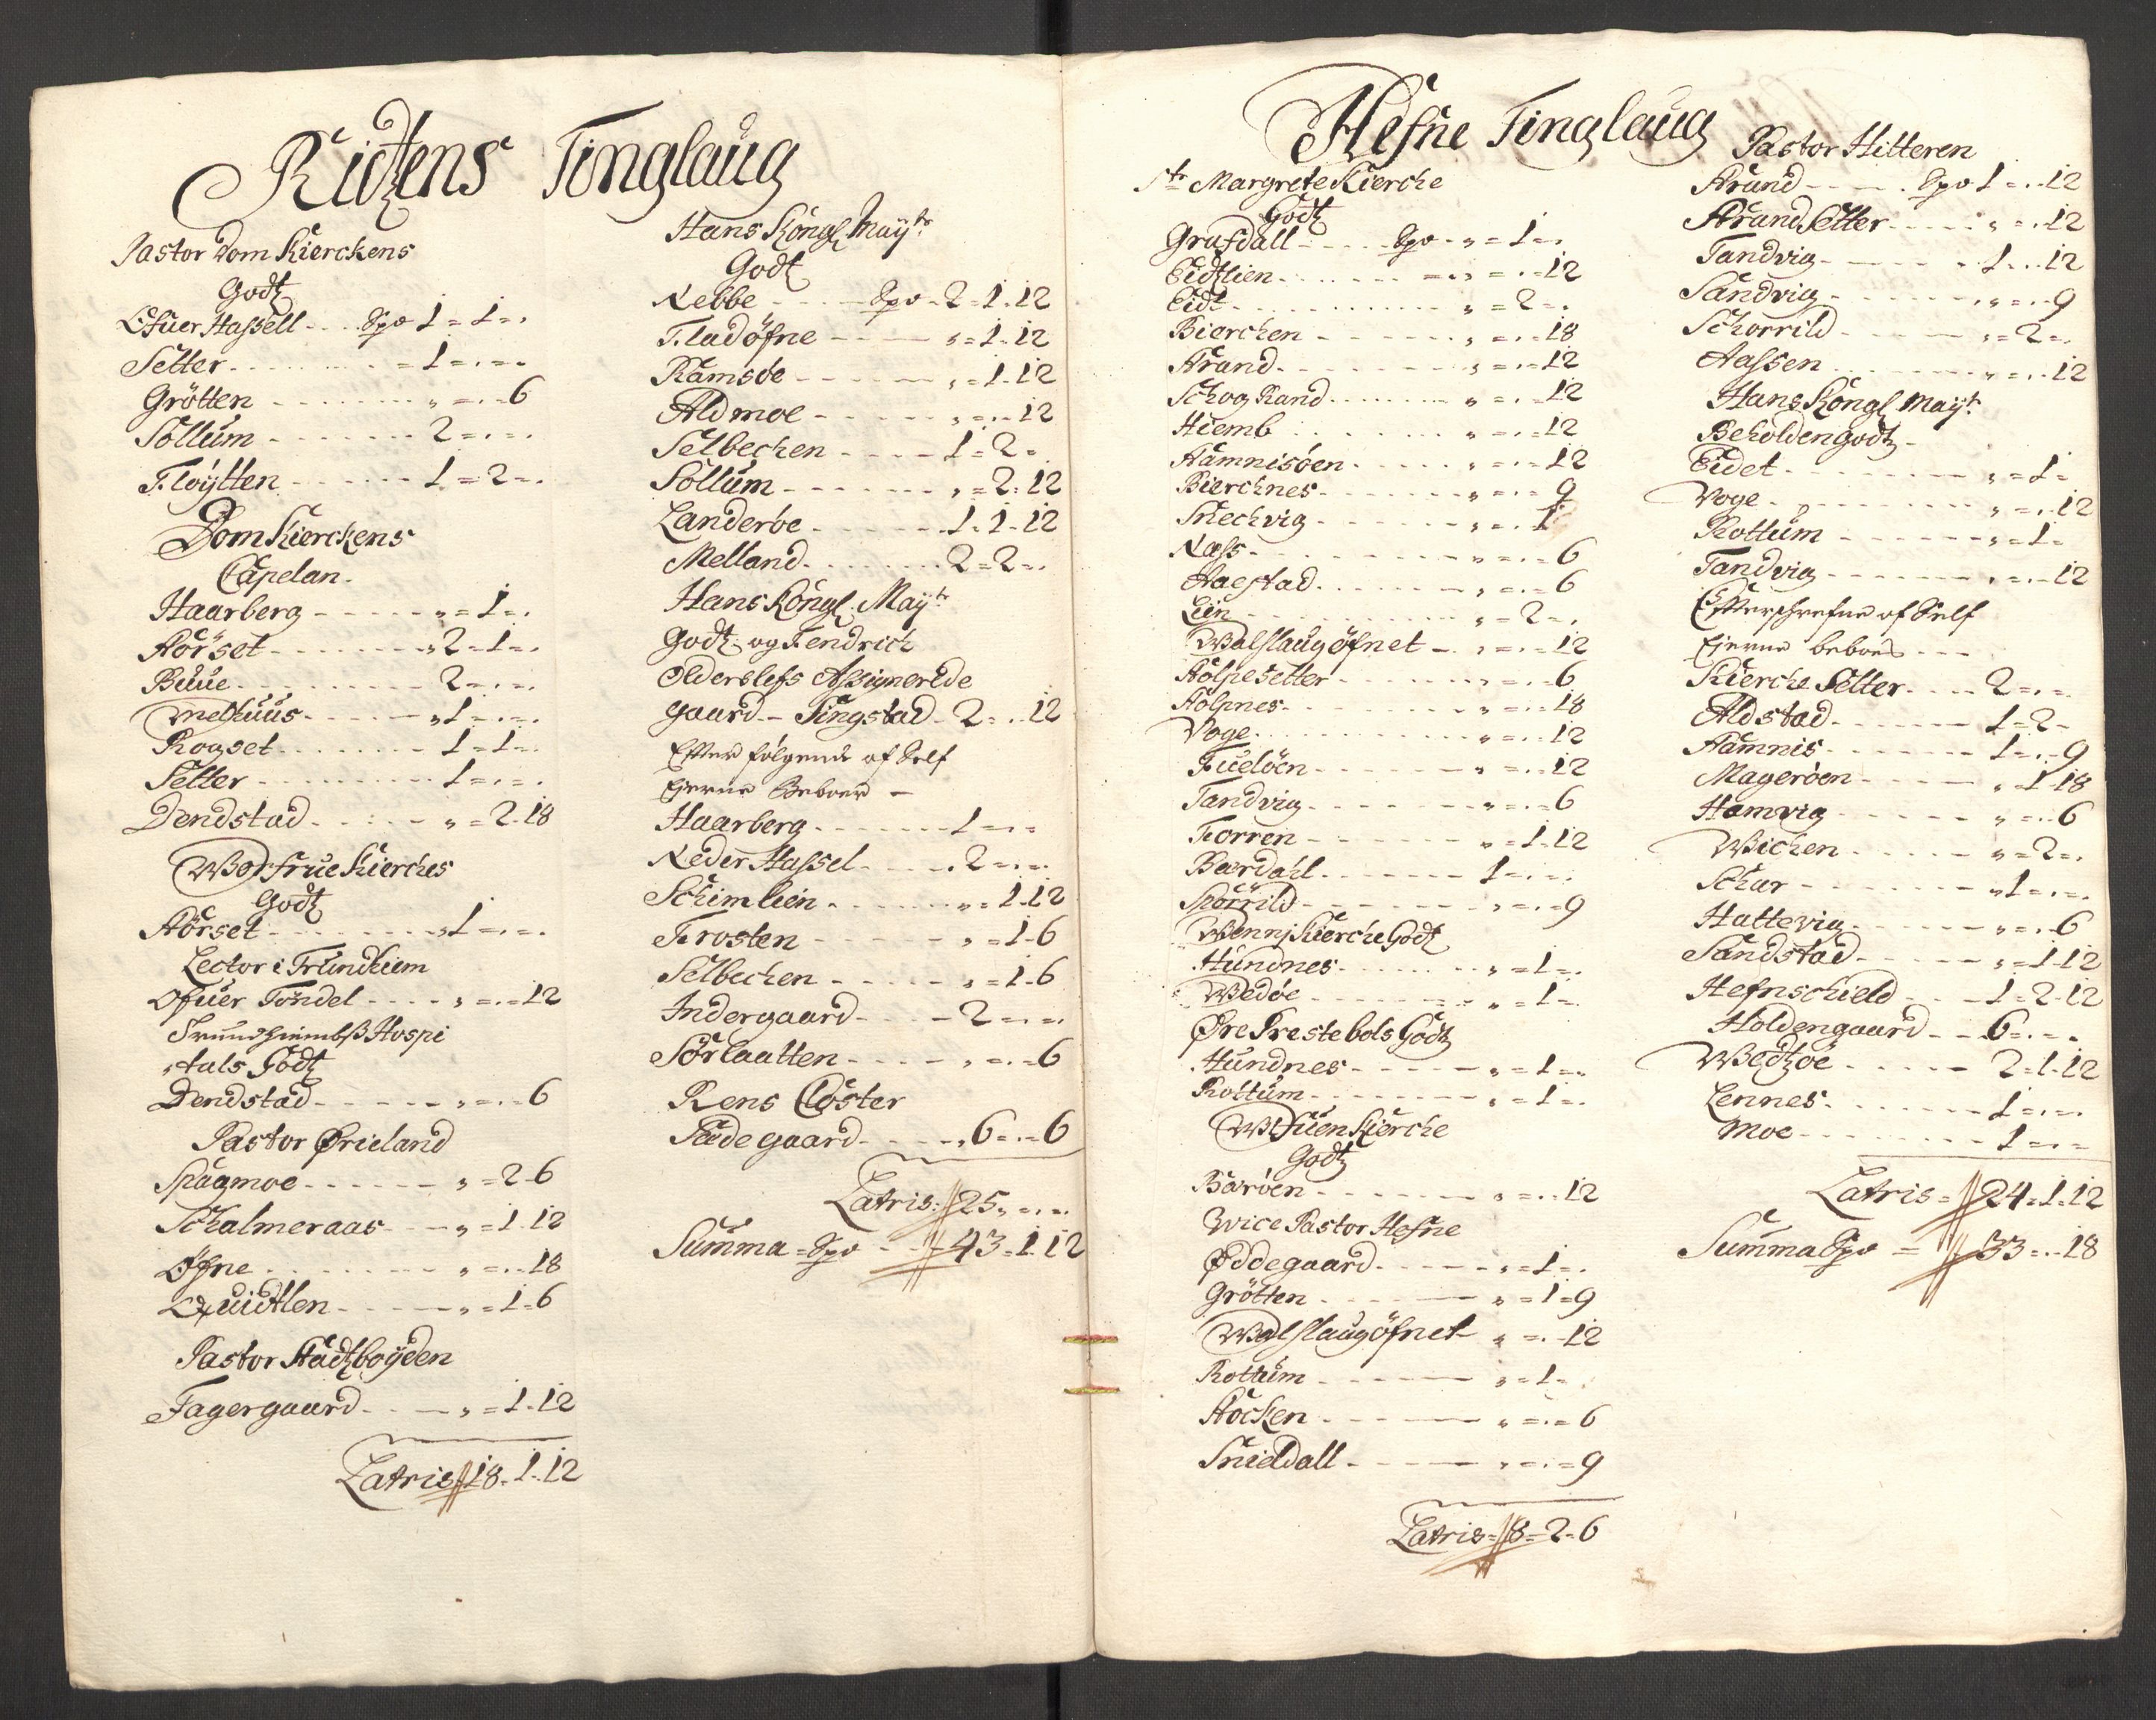 Ridtzens Tinglaug
Pastor Dom Kierckens
Godtz
Ofuer Hassell - Spo 1 = 1 = .
Setter - = 1 = . = .
Grötten - „ = . = 6
Sollum - 2 = . = .
Fløytten - 1 = 2 = .
Dom Kierckens
Capelan.
Haarberg - „ = 1 = .
Aörset - „ 2 = 1 = .
Buue - 2 = . = .
Melhuus - „ 1 = . = .
Rogset - 1 = 1 = .
Setter - 1 = . = .
Dendstad - „ = 2 - 18
Worfrue Kierches
Godtz
Aörset - „ 1 = . = .
Lector i Trundhiem
Ofuer Tøndel - „ = . = 12
Trundhiembß Hospi
tals Godtz
Dendstad - „ = . = 6
Pastor Ørieland
Spaagmoe - „ = 2 - 6
Schalmeraas - „ = 1 - 12
Öfne - „ = . - 18
Quidtlen - „ = 1 - 6
Pastor Stadtzboyden
Fagergaard - „ = 1 - 12
Latris 18 - 1 - 12
Hans Kongl Mayts
Godtz
Nebbe - Spo - 2 = 1 - 12
Fladöfne - „ = 1 - 12
Ramsöe - „ = 1 - 12
Aldmoe - „ = . - 12
Selbechen - 1 = 2 = .
Sollum - „ = 2 - 12
Landeröe - 1 - 1 - 12
Melland - 2 = 2 = .
Hans Kongl. Mayts
Godtz og Fendrich
Olderslefs Assignerede
gaard - Tingstad - 2 = . - 12
Efter følgende af Self
Ejerne Beboer -
Haarberg - 1 = . =
Neder Hassel - 2 = . = .
Schimlien - „ = 1 - 12
Trosten - „ = 1 - 6
Selbechen - „ = 1 - 6
Indergaard - 2 = . = .
Sörlaatten - „ = . = 6
Rens Closter
Rødegaard - „ 6 = . = 6
Latris: 25 „ = . = .
Summa = Spo - 43 = 1 - 12
Hefne Tinglaug
Ste Margrete Kierche
Godtz
Grafdall - Spo - „ = 1 = .
Eidtzlien - „ = . = 12
Eidt - „ = 2 = .
Bierchen - „ = . = 18
Aarand - „ = . = 12
Schogrand - „ = . = 12
Hiemb - „ = . = 12
Hamnisöen - „ = . = 12
Bierchnes - „ = . = 9
Snechvig - „ = . 1
Næss - „ = . = 6
Aaestad - „ = . = 6
Lien - „ = 2 = .
Walslaugöfnet - „ = . = 12
Holpesetter - „ = . = 6
Holpnes - „ = . = 18
Voge - „ = . = 12
Fuelöen - „ = . = 12
Tandvig - „ = . = 6
Korren - „ = 1 - 12
Bærdahl - 1 = . = .
Sporrild - „ = . = 9
Wennj Kierche Godtz
Hundnes - „ = 1 = .
Wedöe - „ = 1 = .
Øre Prestebols Godtz
Hundnes - „ = 1 = „
Rottum - „ = 1 = .
Godtz
Baröen - „ = . - 12
Vice Pastor Hefne
Øddegaard - „ = 1 = .
Grötten - „ = 1 = 9
Walslaugöfnet „ = . - 12
Rottum - „ = 1 = .
Stocken - „ = . = 6
Snieldall - „ = . = 9
Latris = 8 = 2 = 6
Pastor Hitteren
Strand - Spo 1 = . - 12
Strand Setter - „ = . 12
Tandvig - 1 . . 12
Sandvig - „ = . = 9
Schorrild - „ = 2 = .
Aassen - „ = . - 12
Hans Kongl Mayts
Beholdengodtz -
Eidet - „ = 1 =
Voge - „ = . - 12
Rottum - „ = 1 =
Tandvig - „ = . - 12
Efterschrefne af Self
Ejerne beboes - - -
Kierche Setter - 2 = . = .
Aldstad - 1 = 2 -
Hamnis - 1 = . = 9
Mageröen - „ 1 - 18
Hamvig - „ = . 6
Wichen - „ = 2 = .
Schar - „ 1 = . = .
Hattevig - „ = . 6
Sandstad - „ = 1 - 12
Hefnschield - 1 = 2 - 12
Holdengaard - 6 = . = .
Wedtzöe - 2 = 1 - 12
Lennes - 1 = . = .
Moe - 1 = . =
Latris = 24 = 1 - 12
Summa Spo = 33 = . - 18